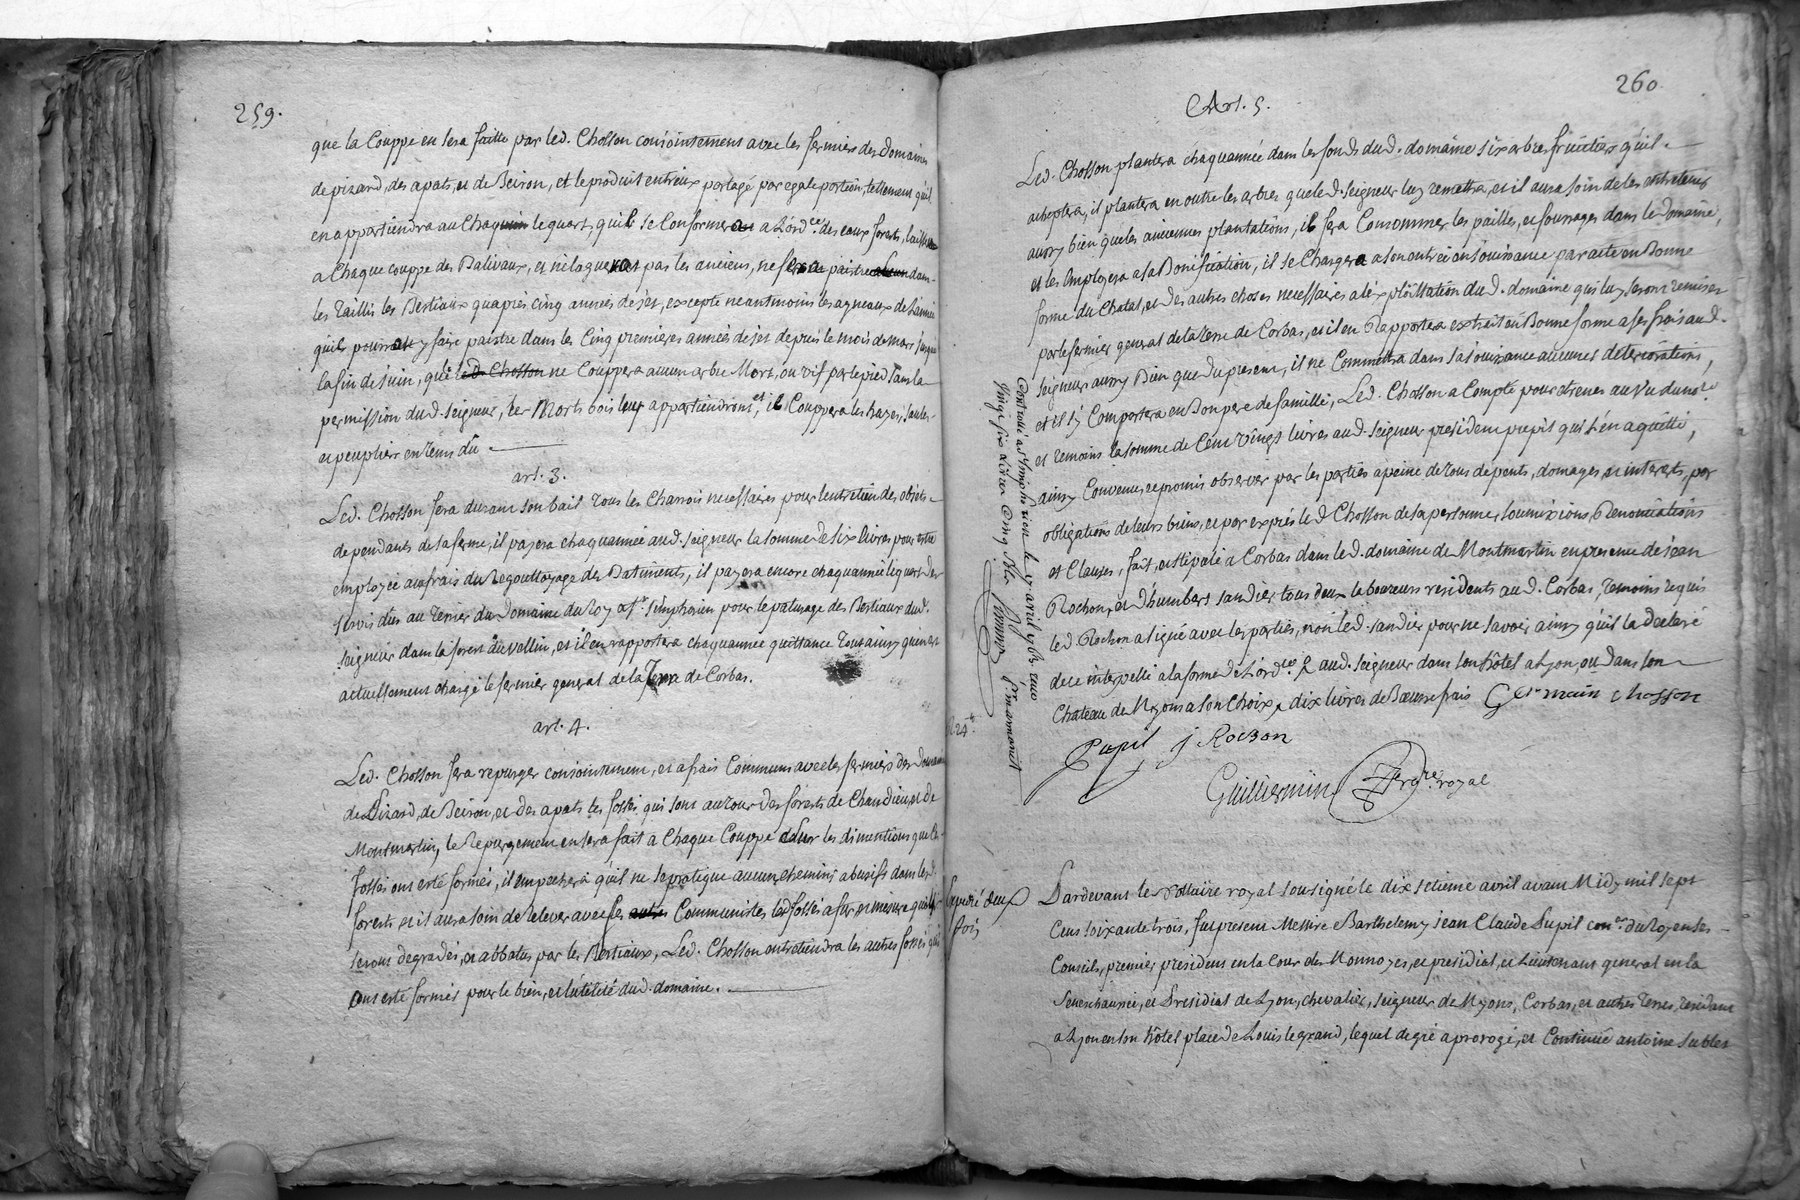 259.
que la Couppe en sera faitte par led. Chosson conjointement avec les fermiers des domaines
de pizard, des apats, et de Beiron, et le produit entr'eux partagé par egale portion, tellement qu'il
en appartiendra au Chaquun le quart, quil se Conformera a L'ord.ce des eaux forests, laissera
a Chaque couppe des Balivaux, et n'elaguera pas les anciens, ne fera paistre dans
les Taillis les Bestiaux qu'apres cinq années de jet, excepté neantmoins les agneaux de L'année
quil pourra y faire paistre dans les Cinq premieres années de jet depuis le mois de mars jusque
la fin de Juin, que led. Chosson ne Couppera aucun arbre Mort, ou vif par le pied Sans la
permission dud. seigneur, les Morts bois luy appartiendront, et il Couppera les hayes, saules
et peupliers en tems dû
art. 3.
Led. Chosson fera durant son bail tous les Charrois necessaires pour l'entretien des objets
dependants de sa ferme, il payera chaquannée aud. seigneur la somme de six livres pour estre
employée aux frais du Regouttoyage des Batiments, il payera encore chaquannée le quart des
servis dus au terrier du Domaine du Roy a St. simphorien pour le paturage des Bestiaux dud.
seigneur dans la forest du vellin, et il en rapportera chaquannée quittance tout ainsy qu'en est
actuellement chargé le fermier general de la Terre de Corbas.
art. 4.
Led. Chosson fera repurger conjointement, et a frais Communs avec les fermiers des Domaines
de Pizard, de Beiron, et des apats les fossés qui sont autour des forests de Chandieu, et de
Montmartin, le Repurgement en sera fait a Chaque Couppe sur les dimentions que les
fossés ont esté formés, il empechera qu'il ne se pratique aucuns chemins abusifs dans lesd.
forests et il aura soin de relever avec ses Communistes lesd fossés a fur, et mesure qu'ils
seront degradés, et abbatus par les Bestiaux, Led. Chosson entretiendra les autres fossés qui
ont esté formés pour le bien, et l'utilité dud. domaine.
260
Art. 5.
Led. Chosson plantera chaquannée dans les fonds dud. domaine six arbres fruitiers qu'il
acheptera, il plantera en outre les arbres que led. seigneur luy remettra, et il aura soin de les entretenir
aussy bien que les anciennes plantations, il fera Consommer les pailles, et fourrages dans le domaine,
et les Employera a sa Bonification, il se Chargera a son entrée en jouissance par acte en Bonne
forme du Chetal, et des autres choses necessaires a l'exploittation dud. domaine qui luy seront remises
par le fermier general de la terre de Corbas, et il en Rapportera extrait en Bonne forme a ses frais aud.
seigneur aussy Bien que du present, il ne Commettra dans sa jouissance aucunes deteriorations,
et il s'y Comportera en Bon pere de famille, Led. Chosson a Compté pour etrenes au Vu du not.re
et temoins la somme de Cent vingt livres aud. seigneur president pupil qui l'en a quitté,
ainsy Convenu, et promis observer par les parties a peine de tous depents, domages, et interets, par
obligations de leurs biens, et par exprés led Chosson de sa personne, soumissions, Renontiations
et Clauses, fait, et stipulé a Corbas dans led. domaine de Montmartin en presence de jean
Rochon, et d'humbert sandier tous deux laboureurs residents aud. Corbas, temoins requis
led Rochon a signé avec les parties, non led. sandier pour ne savoir ainsy qu'il l'a declaré
de ce interpellé a la forme de L'ord.ce aud. seigneur dans son hôtel a Lyon, ou dans son
Chateau de Myons a son Choix, dix livres de Beurre frais Germain chosson
Pupil j Rochon
Guilliermin royal
Controllé a st simpho.rien le 17 avril 1763 reçu
vingt six livres cinq s.
Expedié deux
fois
Pardevant le Nottaire royal sousigné le dix setieme avril avant Midy mil sept
Cent soixante trois, fut present Messire Barthelemy jean Claude Pupil con.er du Roy en ses
Conseils, premier president en la Cour des Monnoyes, et presidial, et Lieutenant general en la
Senechaussée, et Presidial de Lyon, chevalier, seigneur de Myons, Corbas, et autres Terres, residant
a Lyon en son hôtel place de Louis le grand, lequel de gré a prorogé, et Continué antoine